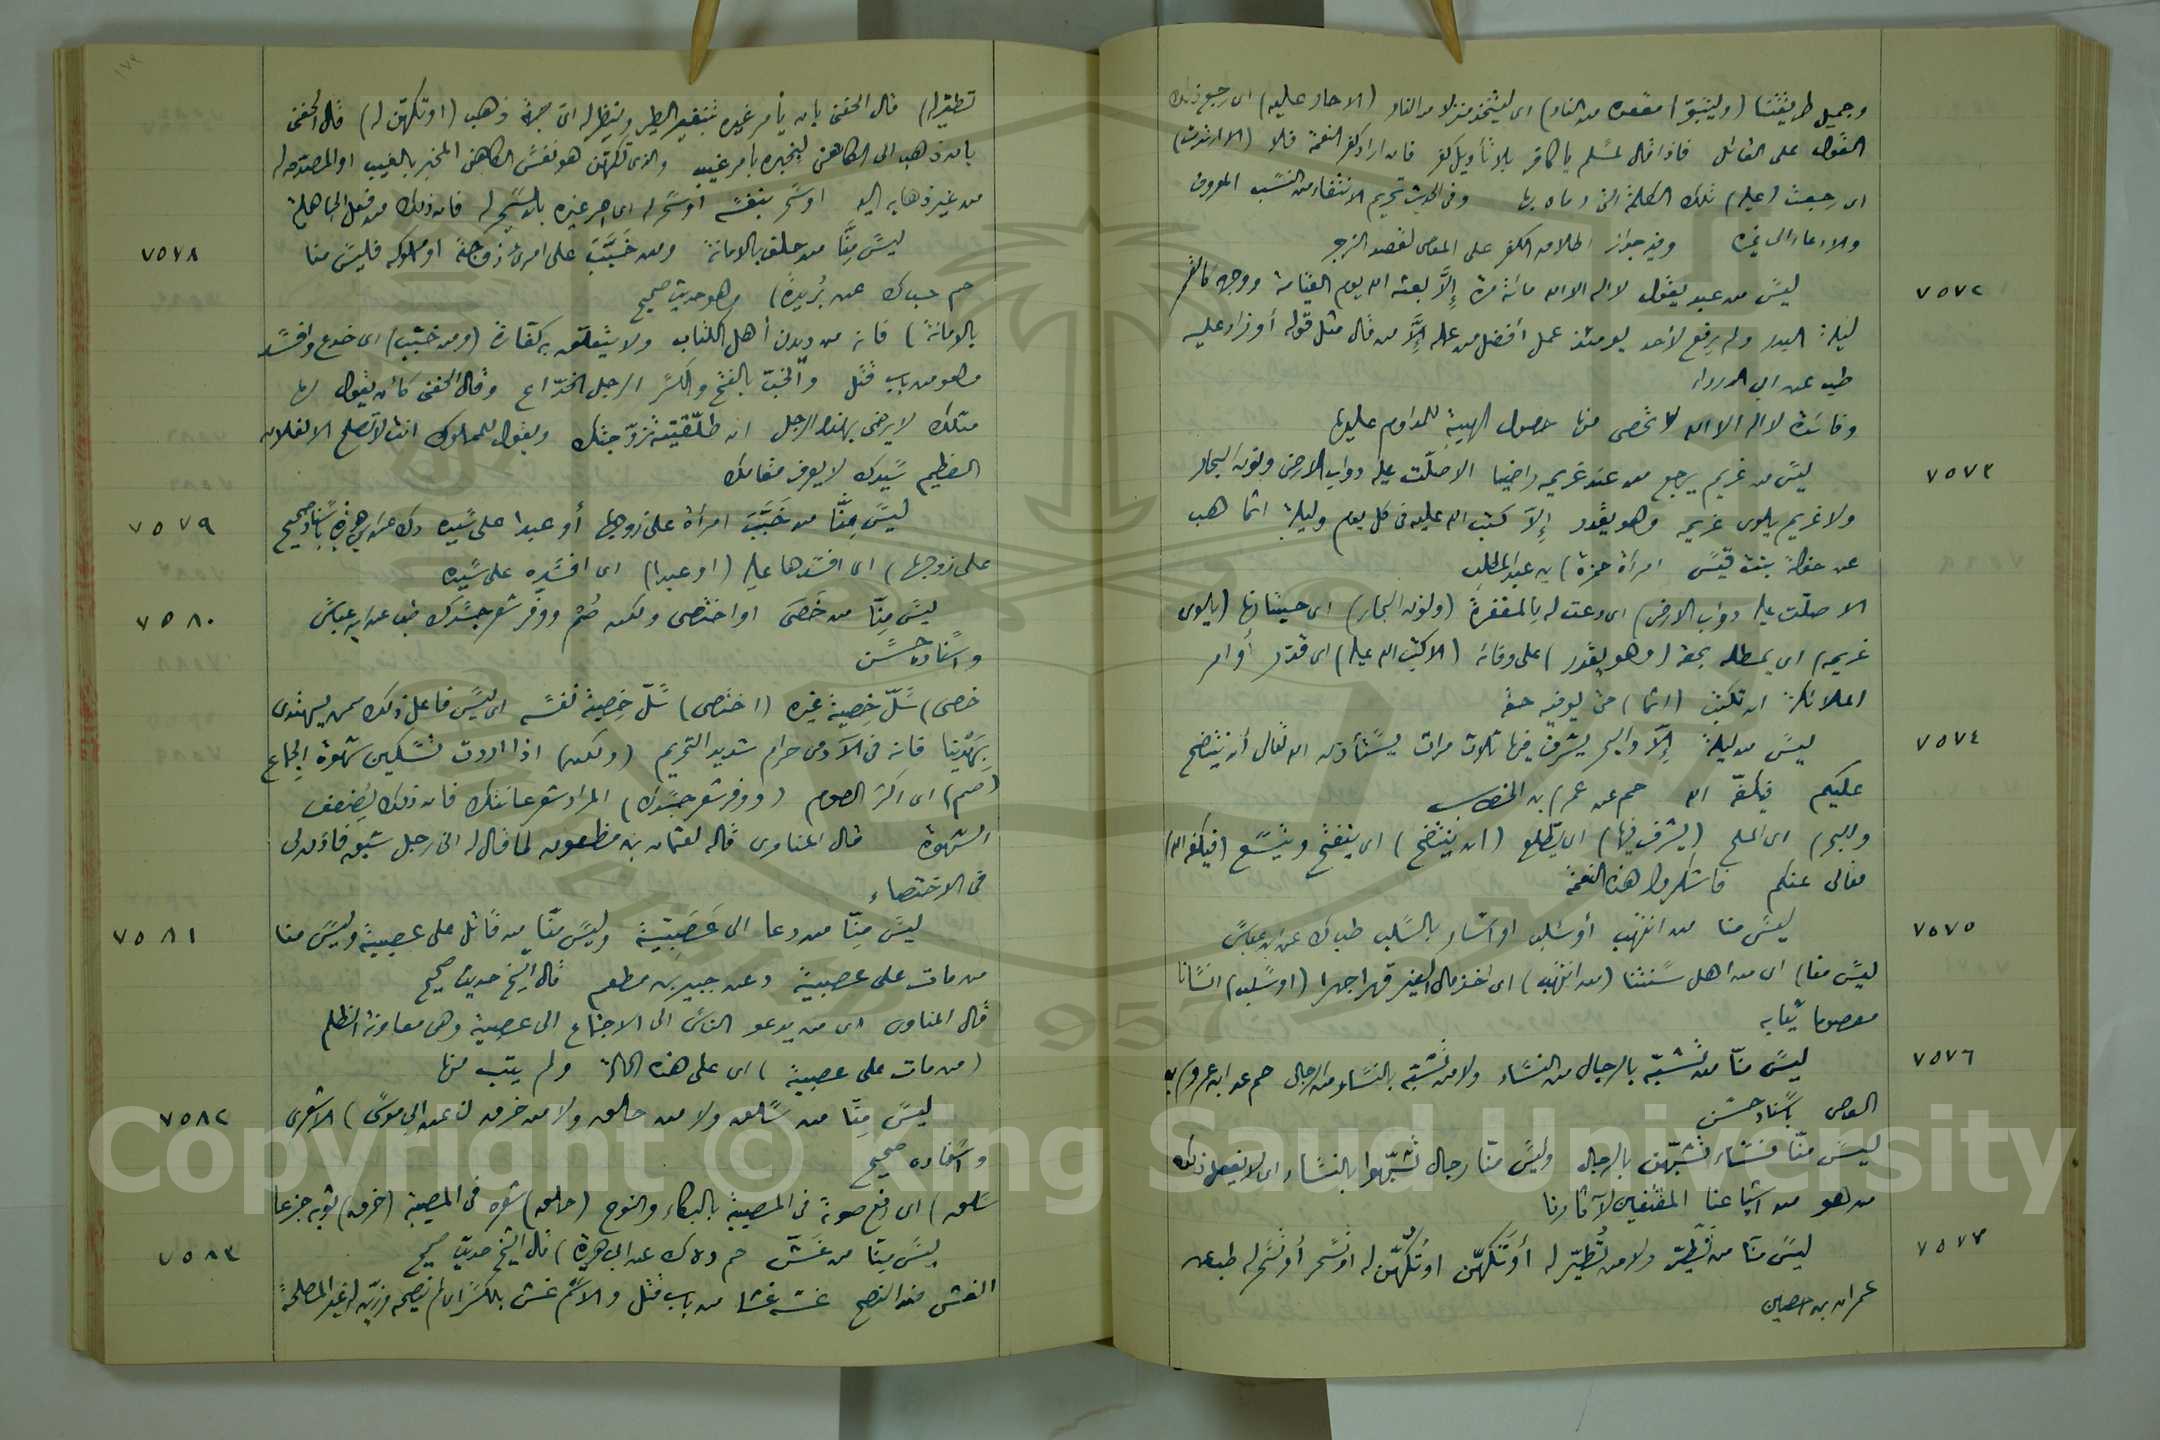 وجميل طريقتنا (وليتبوّأ مقعده من النار) اى ليتخذ منزلا من النار (الا حار عليه) اى رجع ذلك
القول على القائل فاذا قال لمسلم يا كافر بلا تأويل كفر فان اراد كفر النعمة فلا (الا ارتدت)
اى رجعت (عليه) تلك الكلمة التى رماه بها وفى الحديث تحريم الانتفاء من النسب المعروف
والادعاء الى غيره وفيه جواز اطلاق الكفر على المعاصى لقصد الزجر
٧٥٧٢ ليس من عبد يقول لا اله الا الله مائة مرة إلاّ بعثه الله يوم القيامة ووجهه كالقمر
ليلة البدر ولم يرفع لأحد يومئذ عمل أفضل من عمله إلاّ من قال مثل قوله أو زاد عليه
طب عن ابى الدرداء
وفائدة لا اله الا الله لا تحصى منها حصول الهيبة للمداوم عليها
٧٥٧٣ ليس من غريم يرجع من عند غريمه راضيا الا صلّت عليه دواب الارض ونون البحار
ولا غريم يلوى غريمه وهو يقدر إلاّ كتب الله عليه فى كل يوم وليلة اثما هب
عن خولة بنت قيس امرأة حمزة) بن عبد المطلب
الا صلّت عليه دواب الارض) اى دعت له بالمغفرة (ونون البحار) اى حيتانها (يلوى
غريمه) اى يمطله بحقه (وهو يقدر) على وفائه (الا كتب الله عليه) اى قدّر أو امر
الملائكة ان تكتب (اثما) حتى يوفيه حقه
٧٥٧٤ ليس من ليلة إلاّ والبحر يشرف فيها ثلاث مرات يستأذن الله تعالى أن ينتضح
عليكم فيكفّه الله حم عن عمر) بن الخطاب
والبحر) اى الملح (يشرف فيها) اى يتطلع (ان ينتضح) اى ينفتح ويتسع (فيكفه الله)
تعالى عنكم فاشكروا هذه النعمة
٧٥٧٥ ليس منا من انتهب أو سلب او اشار بالسلب طب ك عن ابن عباس
ليس منا) اى من اهل سنتنا (من انتهب) اى اخذ مال الغير قهرا جهرا (او سلب) انسانا
معصوما ثيابه
٧٥٧٦ ليس منّا من تشبّه بالرجال من النساء ولا من تشبّه بالنساء من الرجال حم عن ابن عمرو) بن
العاص باسناد حسن
ليس منّا نساء تشبّهن بالرجال وليس منّا رجال تشبّهوا بالنساء اى لا يفعل ذلك
من هو من اشياعنا المقتفين لآثارنا
٧٥٧٧ ليس منّا من تَطيّر ولا من تُطيّر له أو تَكهّن او تُكهّن له او تسحر أو تُسحر له طب عن
عمران بن حصين
تطيّر له) قال الحفنى بان يأمر غيره بتنفير الطير وينظر له اى جهة ذهب (او تكهّن له) قال الحفنى
بان ذهب الى الكاهن ليخبره بأمر غيب والذى تكهّن هو نفس الكاهن المخبر بالغيب او المصدق له
من غير ذهابه اليه او سحر بنفسه او سحر له اى امر غيره بالسحر له فان ذلك من فعل الجاهلية
٧٥٧٨ ليس مِنّا من حلف بالامانة ومن خَبَّبَ على امرئ زوجته او مملوكه فليس منا
حم حب ك عن بُريدة) وهو حديث صحيح
بالامانة) فانه من ديدن أهل الكتاب ولا يتعلق به كفارة (ومن خبّب) اى خدع وافسد
وهو من باب قتل والخب بالفتح والكسر الرجل الخدّاع وقال الحفنى كأن يقول لها
مثلك لا يرضى بهذا الرجل ان طلّقتيه تزوّجتك ويقول للمملوك انت لا تصلح الا لفلان
العظيم سيدك لا يعرف مقامك
٧٥٧٩ ليس مِنّا من خَبَّبَ امرأة على زوجها أو عبدا على سيده دك عن ابى هريرة باسناد صحيح
على زوجها) اى افسدها عليه (او عبدا) اى افسده على سيده
٧٥٨٠ ليس مِنّا من خَصَى او اختصى ولكن صُم ووفّر شعر جسدك طب عن ابن عباس
واسناده حسن
خصى) سَلّ خِصية غيره (اختصى) سَلّ خِصية نفسه اى ليس فاعل ذلك ممن يهتدى
بِهَدْيِنا فانه فى الآدمى حرام شديد التحريم (ولكن) اذا اردت تسكين شهوة الجماع
(صم) اى اكثر الصوم (ووفر شعر جسدك) المراد شعر عانتك فان ذلك يُضعف
الشهوة قال المناوى قاله لعثمان بن مظعون لما قال له انى رجل شبق فاذن لى
فى الاختصاء
٧٥٨١ ليس مِنّا من دعا الى عَصَبيّة وليس منّا من قاتل على عصبية وليس منا
من مات على عصبية د عن جبير بن مطعم قال الشيخ حديث صحيح
قال المناوى اى من يدعو الناس الى الاجتماع الى عصبية وهى معاونة الظلم
(من مات على عصبية) اى على هذه الحالة ولم يتب منها
٧٥٨٢ ليس مِنّا من سلق ولا من حلق ولا من خرق دن عن ابى موسى) الاشعرى
واسناده صحيح
سلق) اى رفع صوته فى المصيبة بالبكاء والنوح (حلق) شعره فى المصيبة (خرق) ثوبه جزعا
٧٥٨٣ ليس مِنّا من غَشّ حم د ه ك عن ابى هريرة) قال الشيخ حديث صحيح
الغش ضد النصح غشه غشا من باب قتل والاسم غش بالكسر اى لم ينصحه وزيّن له غير المصلحة
Copyright © King Saud University
1957